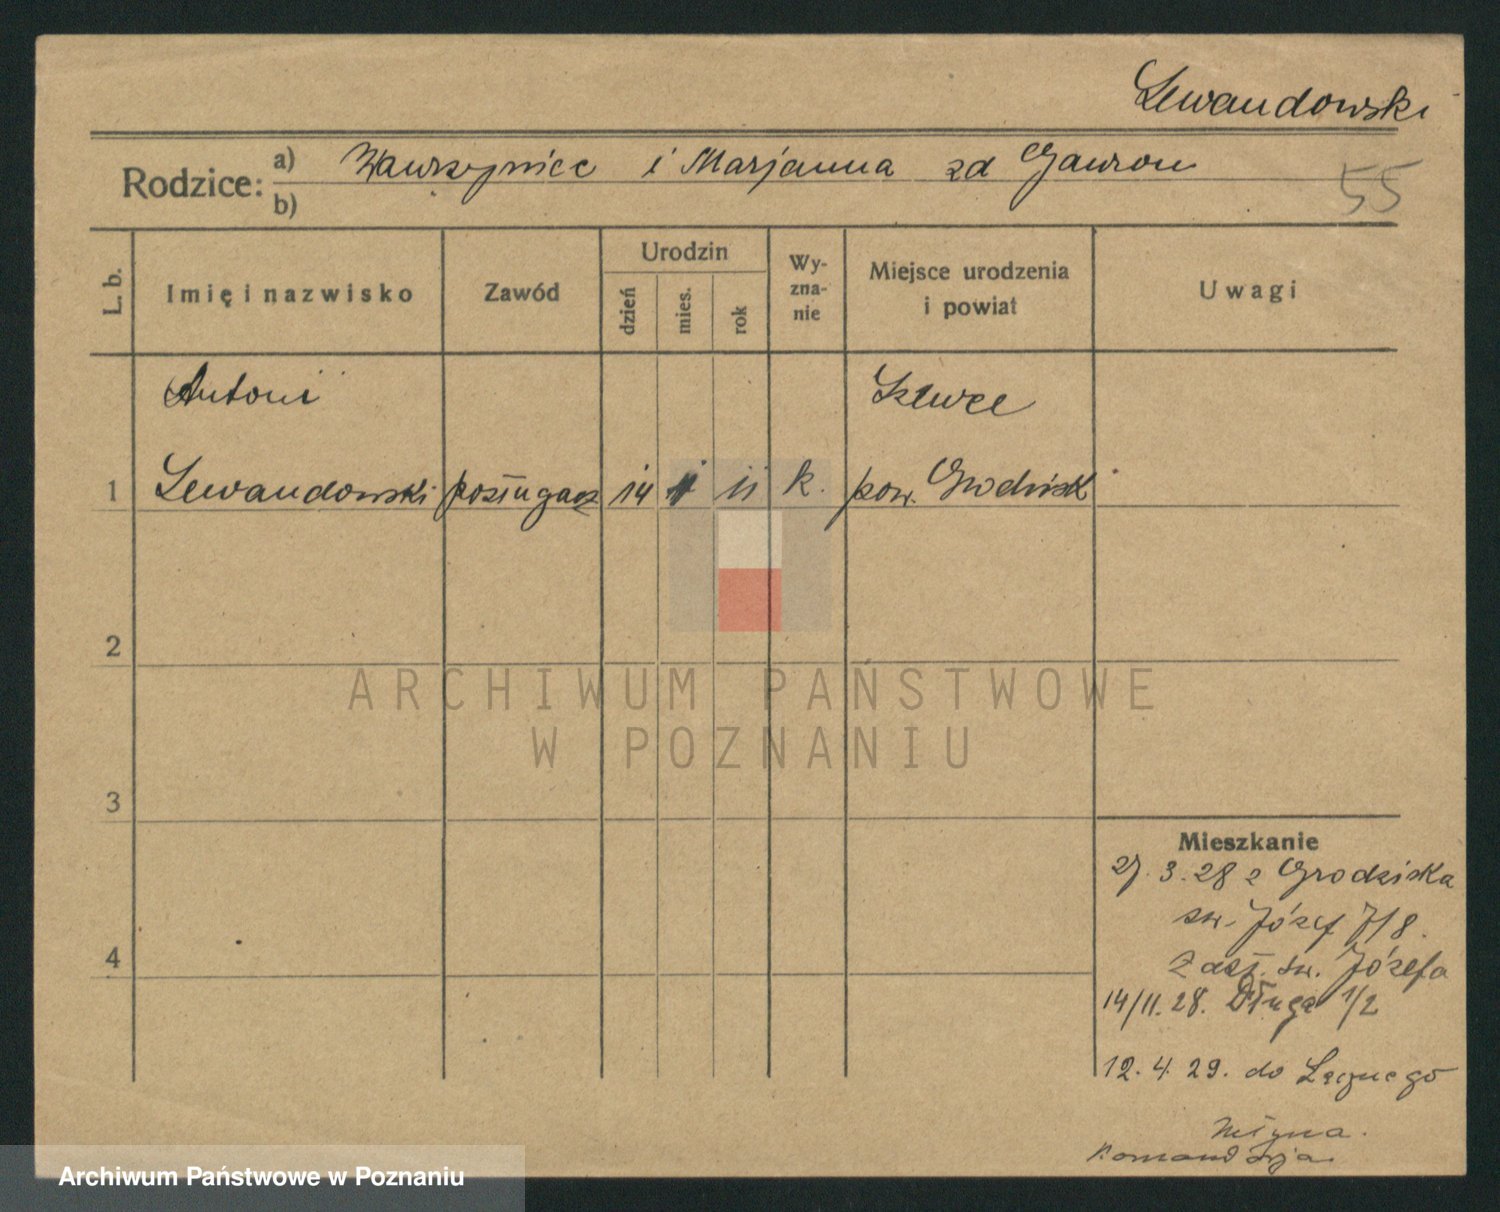 Lewandowski
Rodzice: a) Wawrzyniec i Marjanna zd Gawron
b)
55
L. b.
Imię i nazwisko
Zawód
Urodzin
dzień
mies.
rok
Wy-
zna-
nie
Miejsce urodzenia
i powiat
Uwagi
Antoni
Szewce
1 Lewandowski posługacz 14 1 11 k. pow. Grodzisk
2
ARCHIWUM PAŃSTWOWE
W POZNANIU
3
4
Mieszkanie
27. 3. 28 z Grodziska
św. Józef 7/8.
św. Józefa
14/11. 28. Długa 1/2
12. 4. 29. do Łącznego
Młyna.
Komandorja
Archiwum Państwowe w Poznaniu